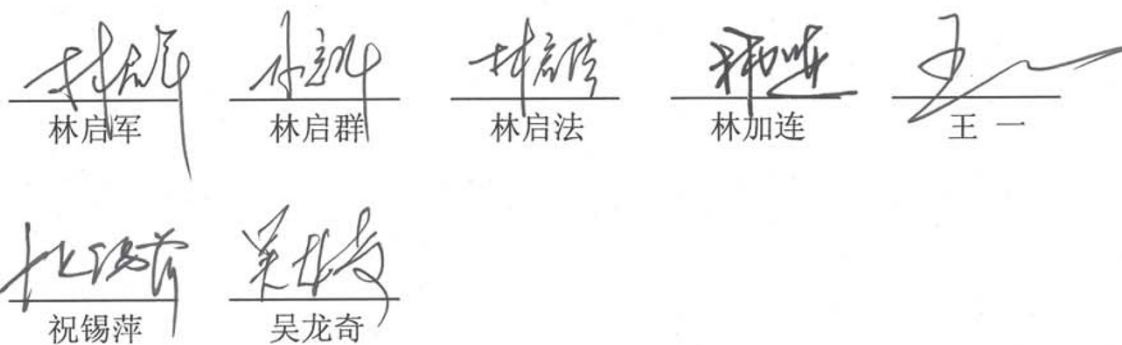 林启军 林启群 林启法 林加连 王 一
祝锡萍 吴龙奇